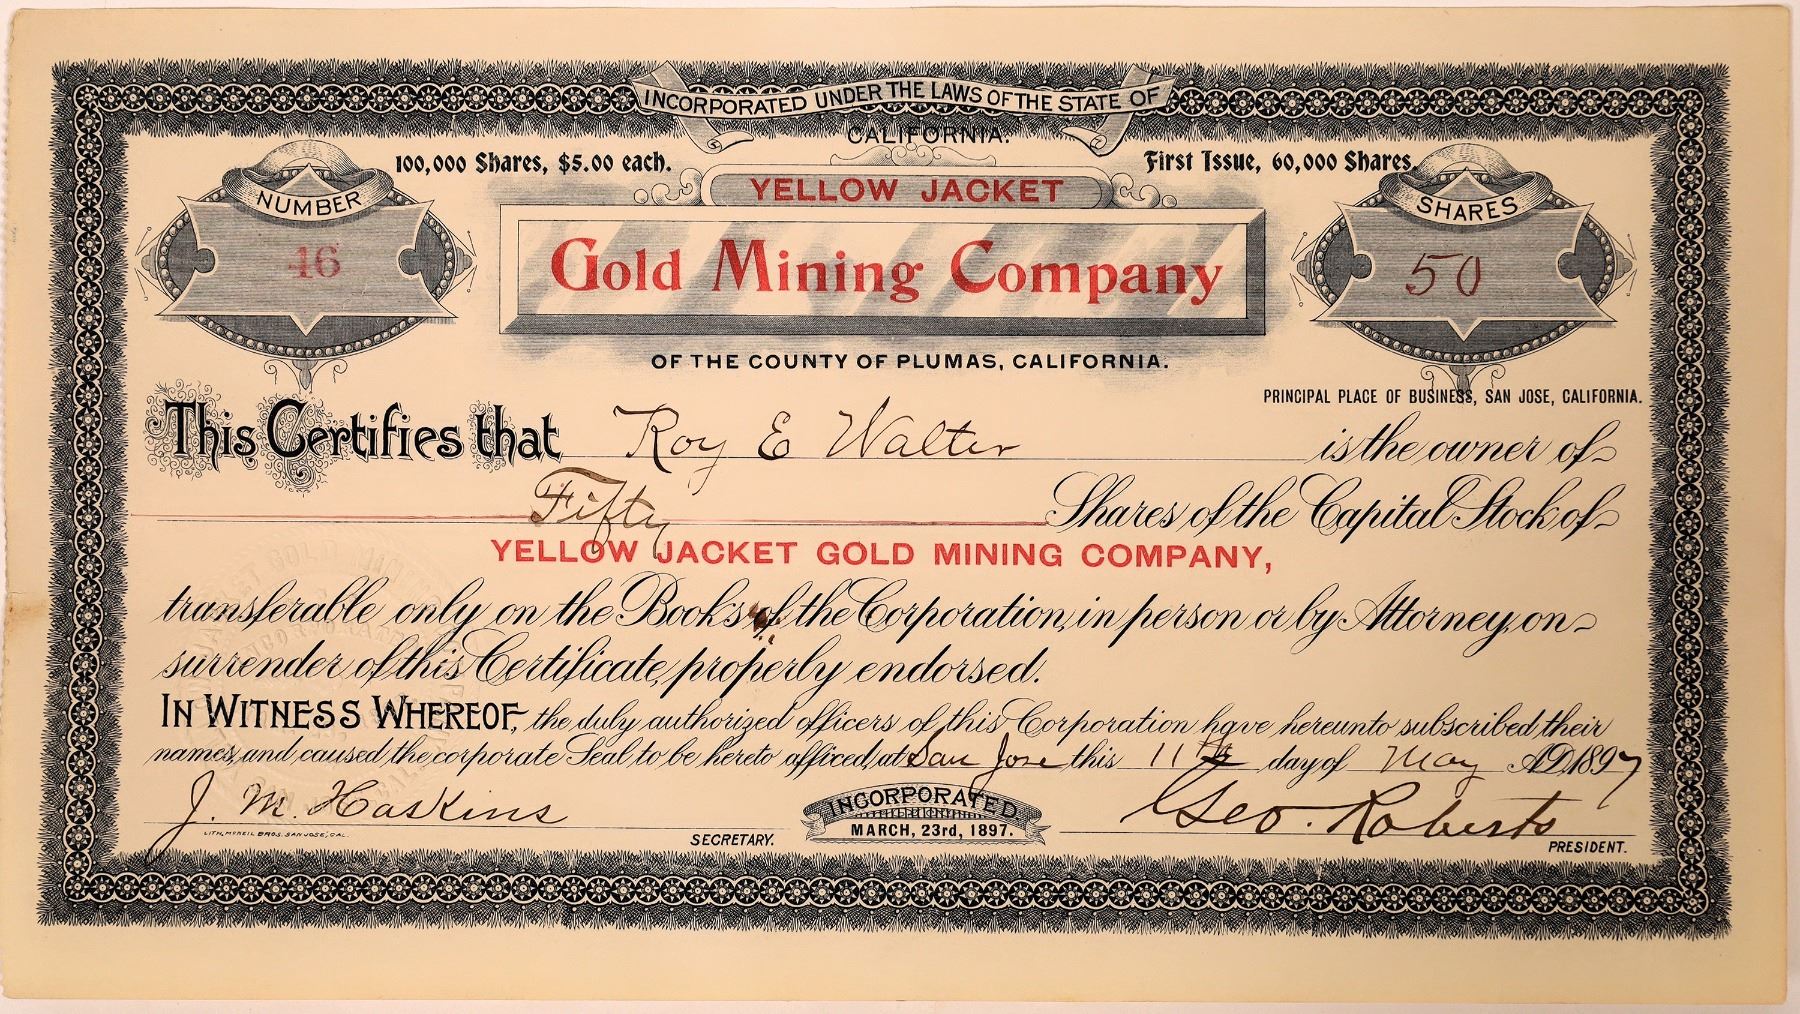 INCORPORATED UNDER THE LAWS OF THE STATE OF
CALIFORNIA.
100,000 Shares, $5.00 each.
First Issue, 60,000 Shares.
NUMBER
46
YELLOW JACKET
Gold Mining Company
SHARES
50
OF THE COUNTY OF PLUMAS, CALIFORNIA.
PRINCIPAL PLACE OF BUSINESS, SAN JOSE, CALIFORNIA.
This Certifies that Roy E Walter is the owner of
Fifty Shares of the Capital Stock of
YELLOW JACKET GOLD MINING COMPANY,
transferable only on the Books of the Corporation, in person or by Attorney, on
surrender of this Certificate, properly endorsed.
IN WITNESS WHEREOF, the duly authorized officers of this Corporation have hereunto subscribed their
names, and caused the corporate Seal to be hereto afficed, at San Jose this 11th day of May A.D. 1897
J. M. Haskins
Geo. Roberts
LITH. MCNEIL BROS. SAN JOSE, CAL.
SECRETARY.
INCORPORATED
MARCH, 23rd, 1897.
PRESIDENT.